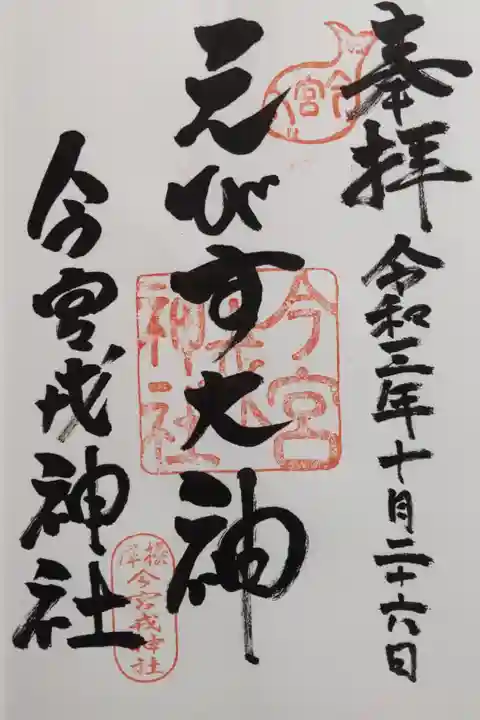 奉拝
令和三年十月二十六日
えびす大神
今宮戎神社
今宮
今宮戎神社
今宮戎神社